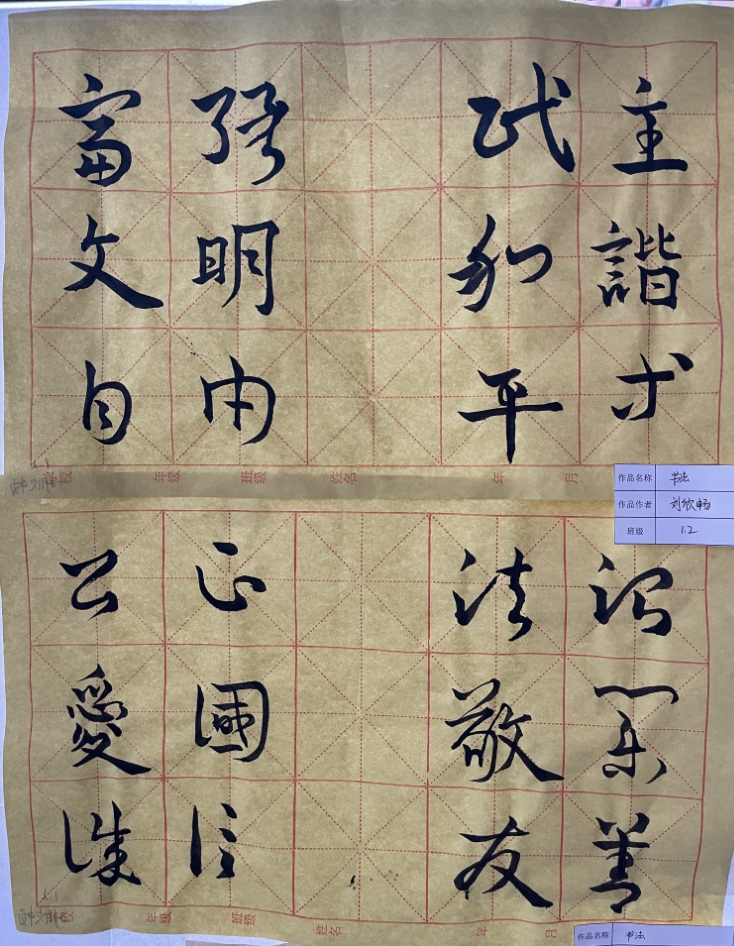 富強民主
文明和諧
自由平等
学校 年级 班级 姓名 年 月
作品名称 书法
作品作者
班级 1.2
公正法治
愛國敬業
誠信友善
学校 年级 班级 姓名 年 月
作品名称 书法